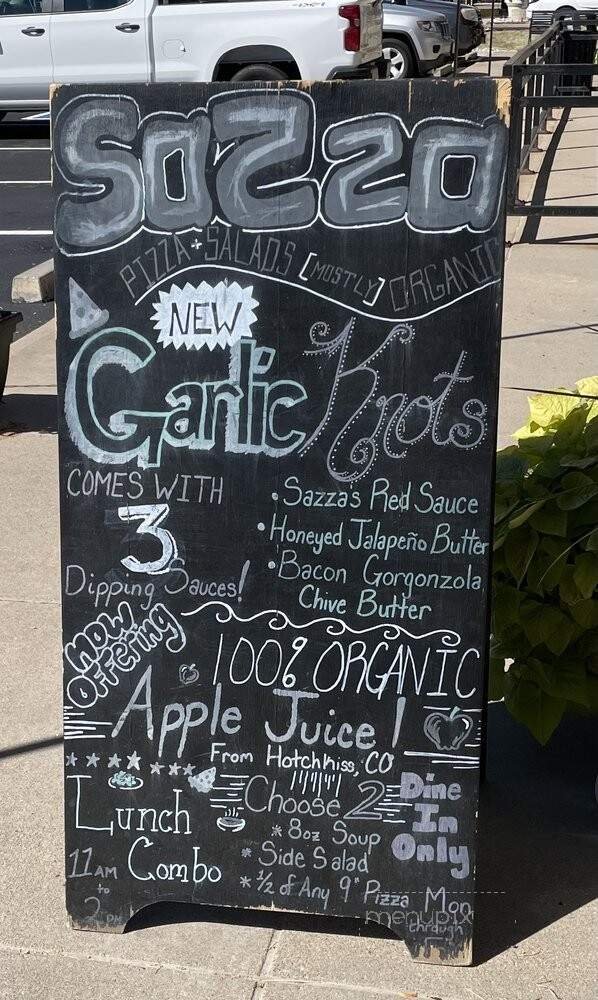 Sazza
PIZZA + SALADS [MOSTLY] ORGANIC
NEW
Garlic Knots
COMES WITH
3
Dipping Sauces!
• Sazzas Red Sauce
• Honeyed Jalapeño Butter
• Bacon Gorgonzola
Chive Butter
NOW
OFFERING
100% ORGANIC
Apple Juice!
From Hotchkiss, CO
Lunch
Combo
11AM
to
2PM
Choose 2
* 8oz Soup
* Side Salad
* 1/2 of Any 9" Pizza
Dine
In
Only
Mon
through
menupix